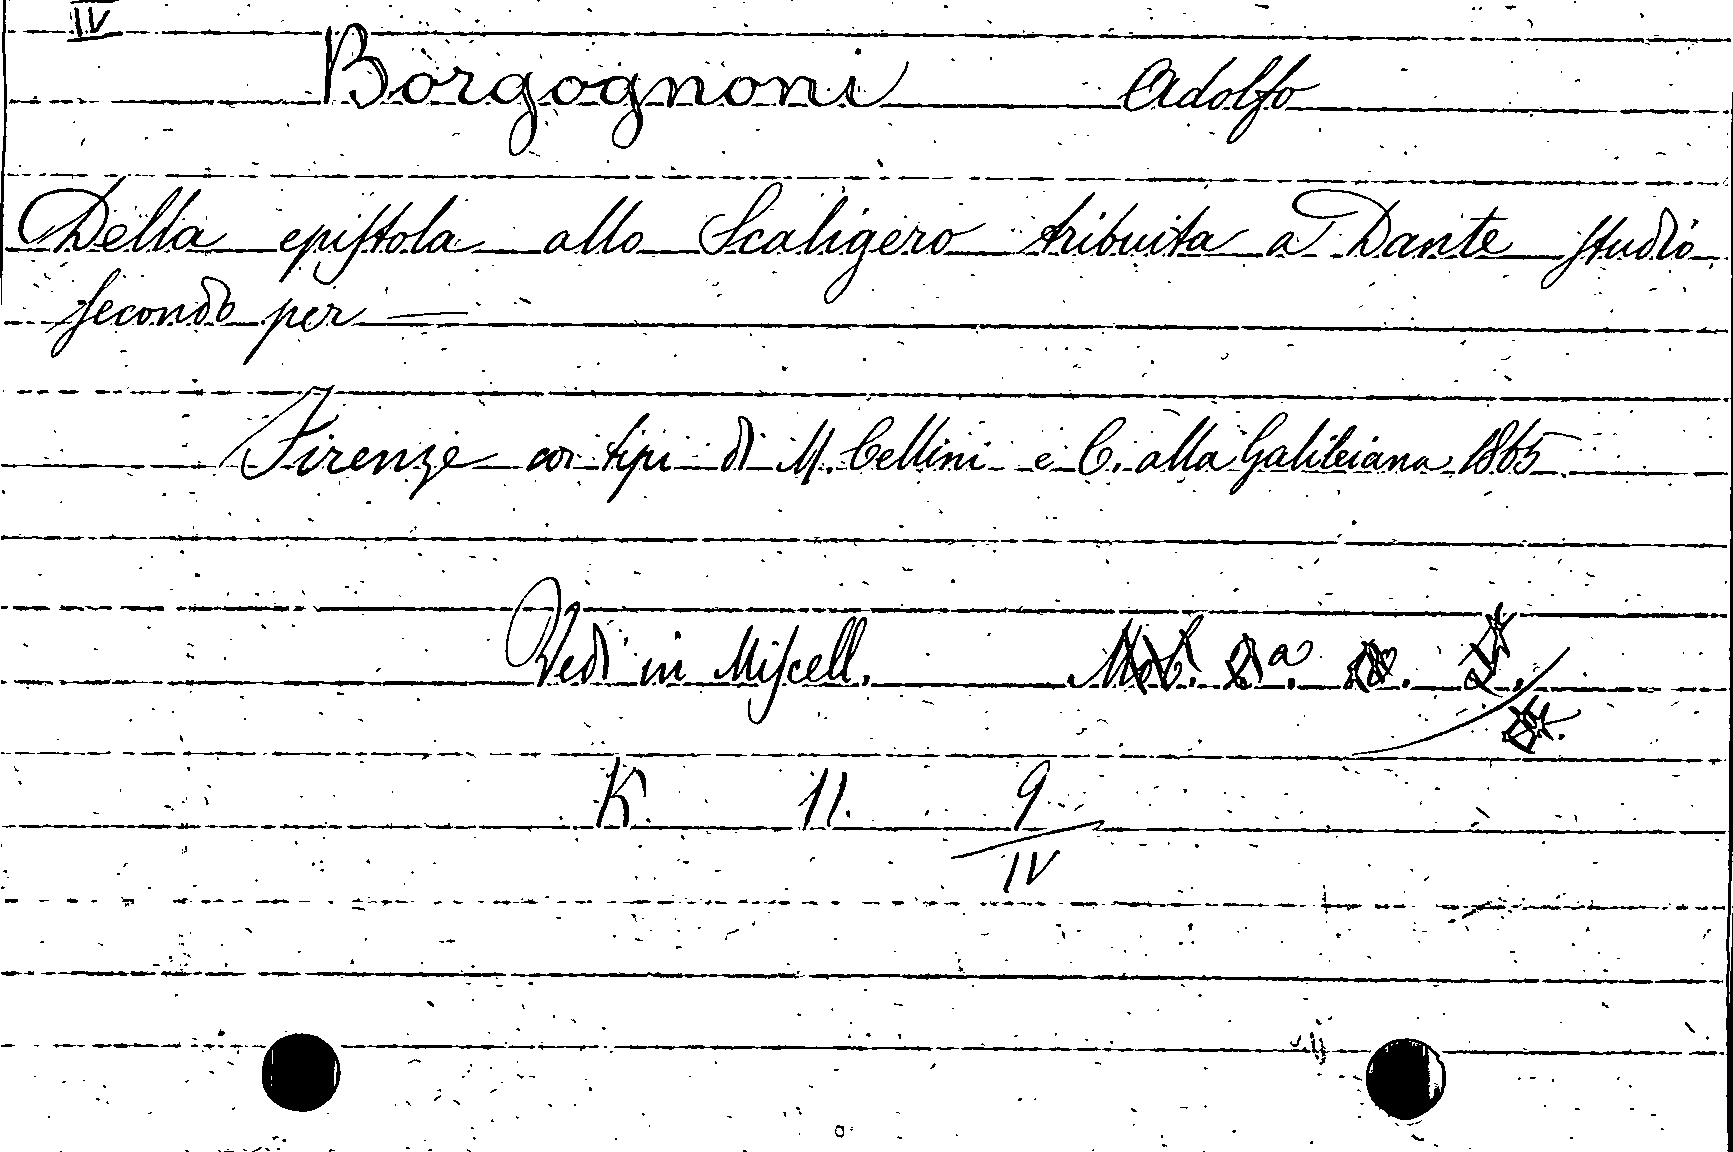 IV
Borgognoni Adolfo
Della epistola allo Scaligero tribuita a Dante studio
secondo per —
Firenze coi tipi di M. Cellini e C. alla Galileiana 1865
Vedi in Miscell. Mob. 2ª.
K. 11. 9
IV